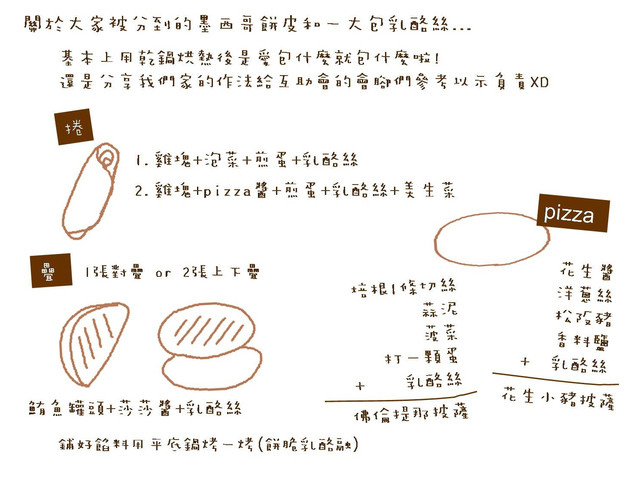 關於大家被分到的墨西哥餅皮和一大包乳酪絲...
基本上用乾鍋烘熱後是愛包什麼就包什麼啦!
還是分享我們家的作法給互助會的會腳們參考以示負責XD
捲
1.雞塊+泡菜+煎蛋+乳酪絲
2.雞塊+pizza醬+煎蛋+乳酪絲+美生菜
疊
1張對疊 or 2張上下疊
鮪魚罐頭+莎莎醬+乳酪絲
鋪好餡料用平底鍋烤一烤(餅脆乳酪融)
pizza
培根1條切絲
蒜泥
菠菜
打一顆蛋
+ 乳酪絲
佛倫提那披薩
花生醬
洋蔥絲
松阪豬
香料鹽
+ 乳酪絲
花生小豬披薩